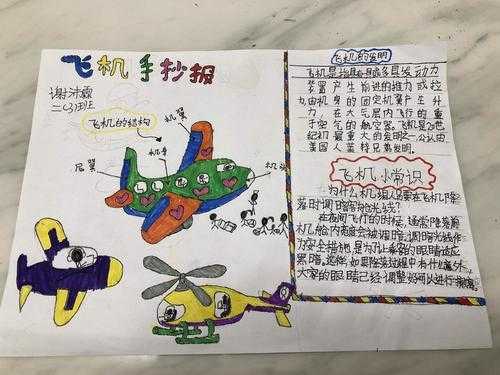 飞机手抄报
谢沐霖
二(3)班
飞机的结构
机翼
机身
尾翼
机头
飞机的发明
飞机是指具有一具或多具发动力
装置产生前进的推力或拉
力,由机身的固定机翼产生升
力,在大气层内飞行的重
于空气的航空器。飞机是20世
纪初最重大的发明之一,公认由
美国人莱特兄弟发明。
飞机小常识
为什么机组人员要在飞机降
落时调暗客舱光线?
在夜间飞行的时候,通常降落前
机舱内都会被调暗,调暗光线作
为安全措施是为了让乘客的眼睛适应
黑暗。这样,如果降落过程中有什么意外
大家的眼睛已经调整好可以进行